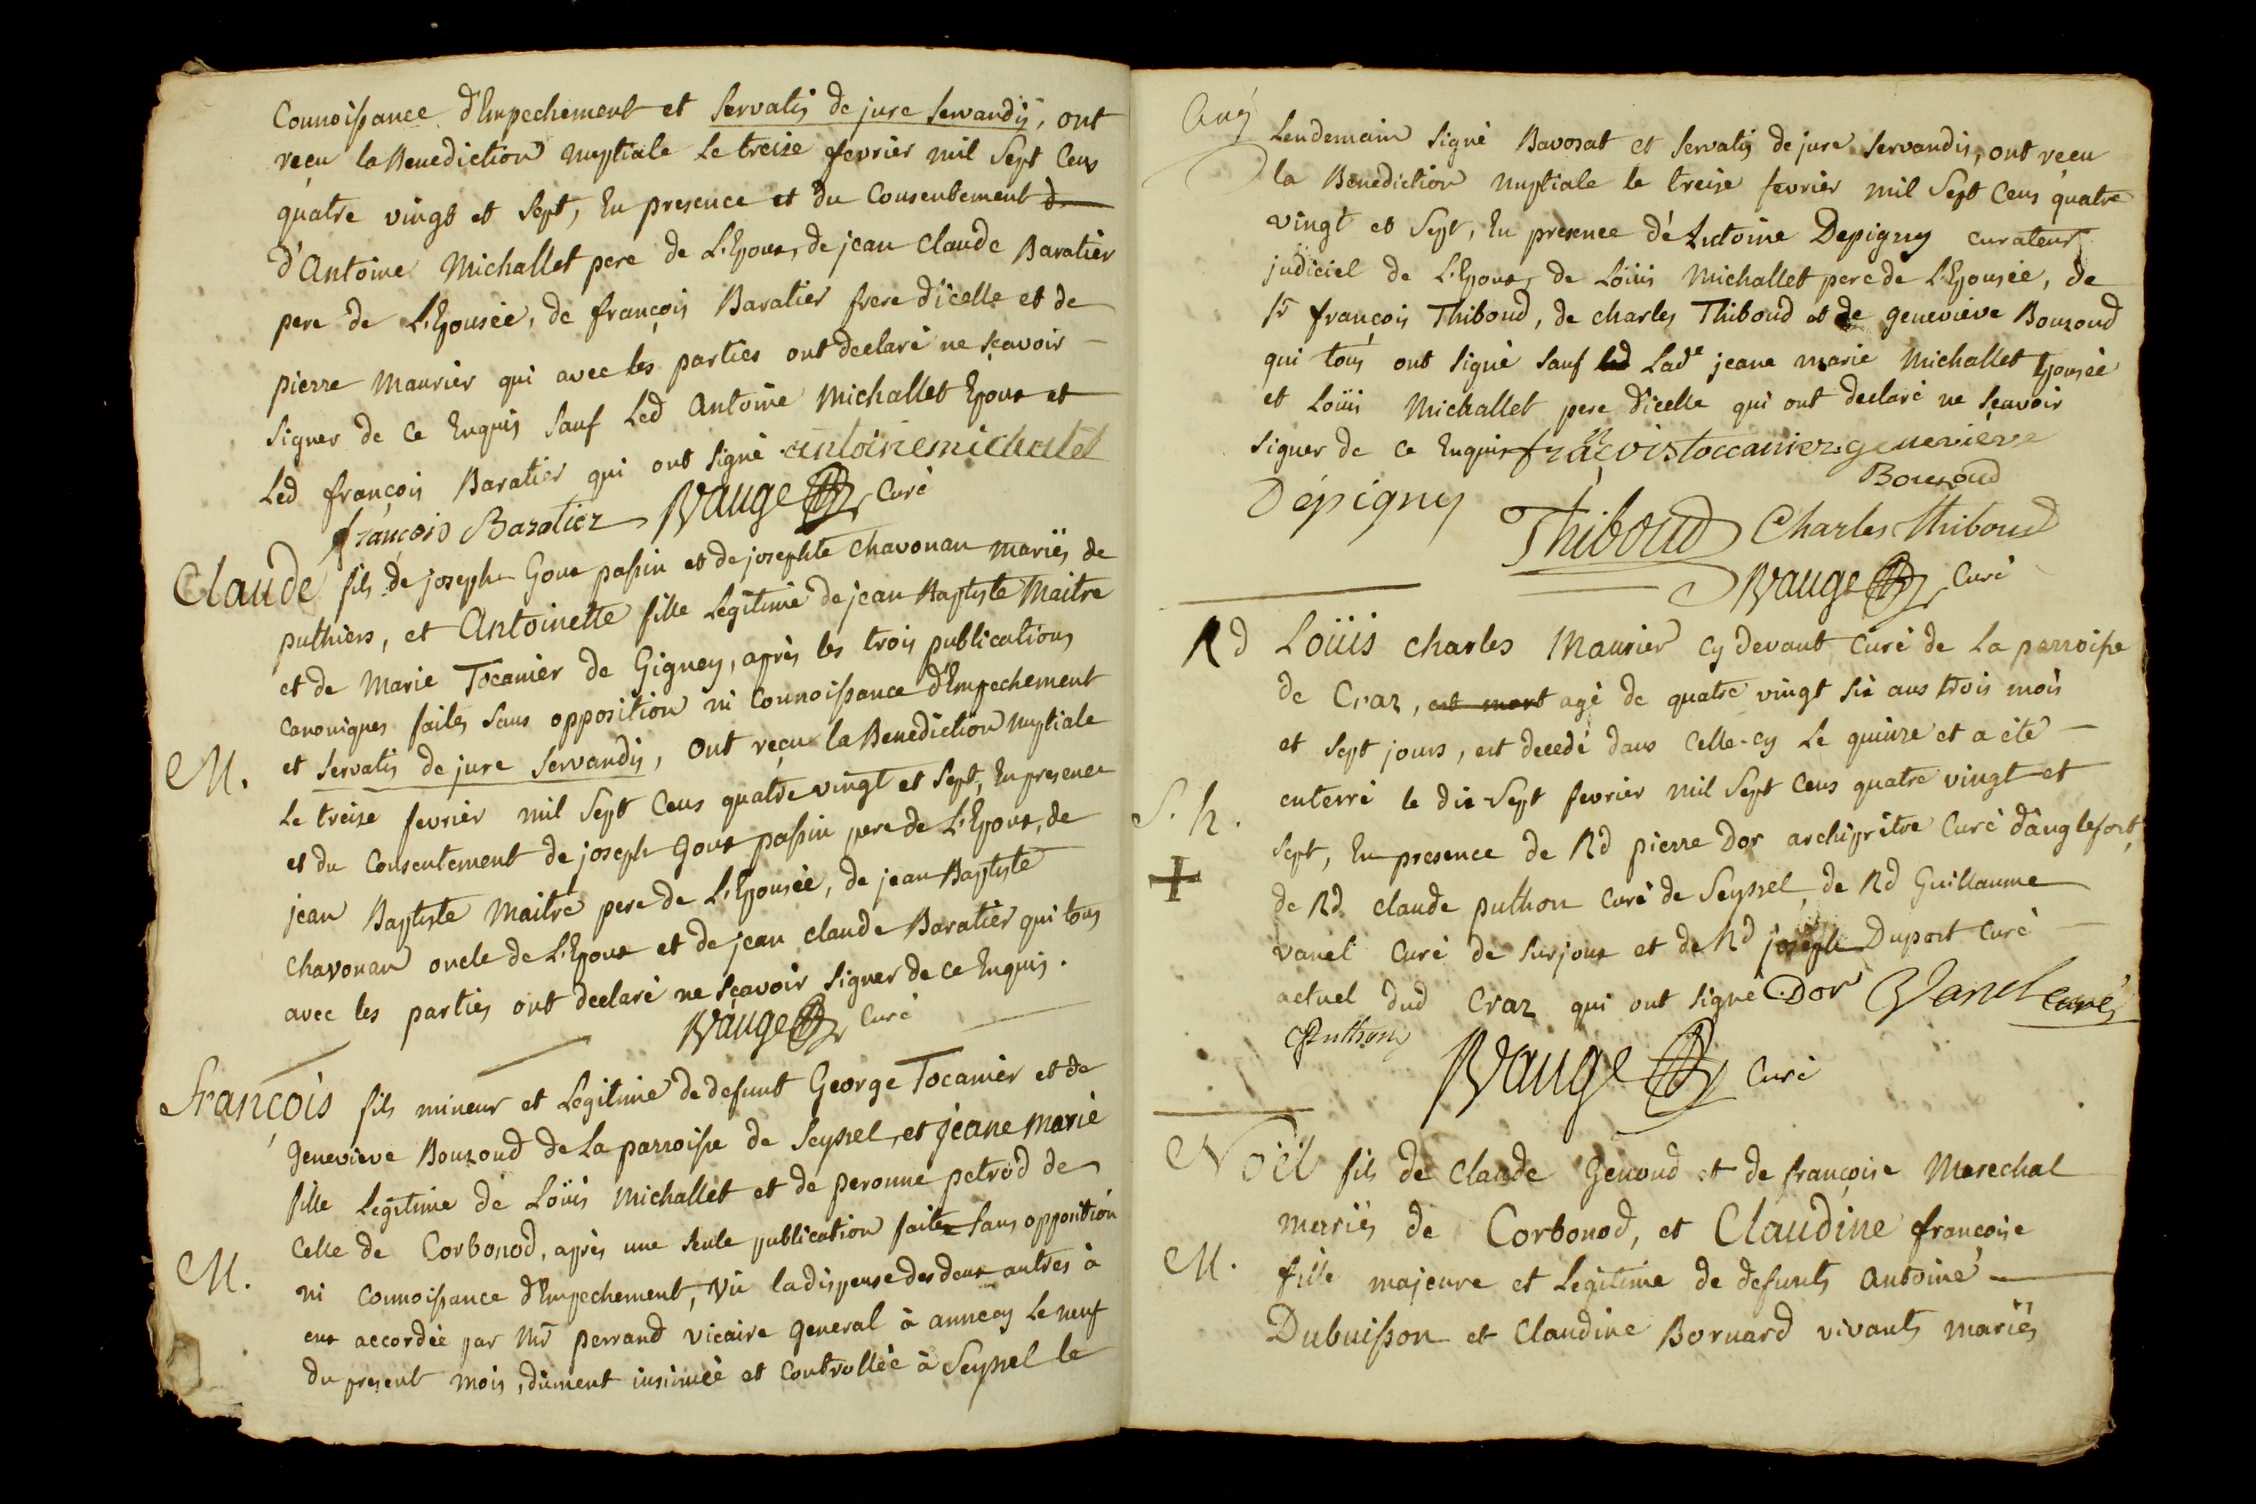 Connoissance d'Empechement et servatis de jure servandis, ont
reçu la Benediction nuptiale Le treize fevrier mil Sept Cens
quatre vingt et Sept, En presence et du Consentement d
d'Antoine Michallet pere de L'Epoux, de jean Claude Baratier
pere de L'Epousée, de françois Baratier frere d'icelle et de
pierre Maurier qui avec les parties ont declaré ne sçavoir
signer de ce Enquis Sauf Led Antoine Michallet Epoux et
Led françois Baratier qui ont signé antoine michalet
françois Baratier RVauge Curé
Claude fils de joseph Goux passin et de josephte Chavonau mariés de
puthiers, et Antoinette fille Legitime de jean Baptiste Maitre
et de Marie Tocanier de Gignez, après les trois publications
Canoniques faites sans opposition ni Connoissance d'Empechement
M. et servatis de jure servandis, ont reçu la Benediction nuptiale
Le treize fevrier mil Sept Cens quatre vingt et Sept, En presence
et du Consentement de joseph Goux passin pere de L'Epoux, de
jean Baptiste Maitre pere de L'Epousée, de jean Baptiste
Chavonau oncle de L'Epoux et de jean claude Baratier qui tous
avec les parties ont declaré ne sçavoir signer de ce Enquis.
RVauge Curé
François fils mineur et Legitime de defunt George Tocanier et de
Genevieve Bouzoud de La parroisse de Seyssel, et jeane Marie
fille Legitime de Loüis Michallet et de peronne petrod de
Celle de Corbonod, après une seule publication faite sans opposition
M. ni Connoissance d'Empechement, vû la dispense des deux autres à
eux accordée par Mr perrand vicaire general à annecy Le neuf
du present mois, dûment insinuée et Controllée à Seyssel le
Lendemain signé Bavozat et servatis de jure servandis, ont reçu
la Benediction nuptiale le treize fevrier mil Sept Cens quatre
vingt et Sept, En presence d'Antoine Depigny curateur
judiciel de L'Epoux, de Loüis Michallet pere de L'Epousée, de
sr françois Thiboud, de charles Thiboud et de genevieve Bouzoud
qui tous ont signé sauf Lade jeane marie Michallet Epousée
et Loüis Michallet pere d'icelle qui ont declaré ne sçavoir
signer de ce Enquis françois toccanier genevieve
Bouzoud
Dépigny
Thiboud Charles thiboud
RVauge Curé
Rd Loüis charles Maurier Cy devant Curé de La parroisse
de Craz, est mort agé de quatre vingt six ans trois mois
et sept jours, est decedé dans Celle-cy Le quinze et a été
S. h. enterré le dix-sept fevrier mil Sept Cens quatre vingt et
Sept, En presence de Rd pierre Dor archiprêtre Curé d'anglefort,
de Rd claude puthon Curé de Seyssel, de Rd Guillaume
vanel Curé de Surjoux et de Rd joseph Duport Curé
actuel dud Craz qui ont signé Dor Vanel curé
Puthon
RVauge Curé
Noël fils de Claude Genoud et de françoise Marechal
mariés de Corbonod, et Claudine françoise
M. fille majeure et Legitime de defunts Antoine
Dubuisson et Claudine Bornard vivants mariés